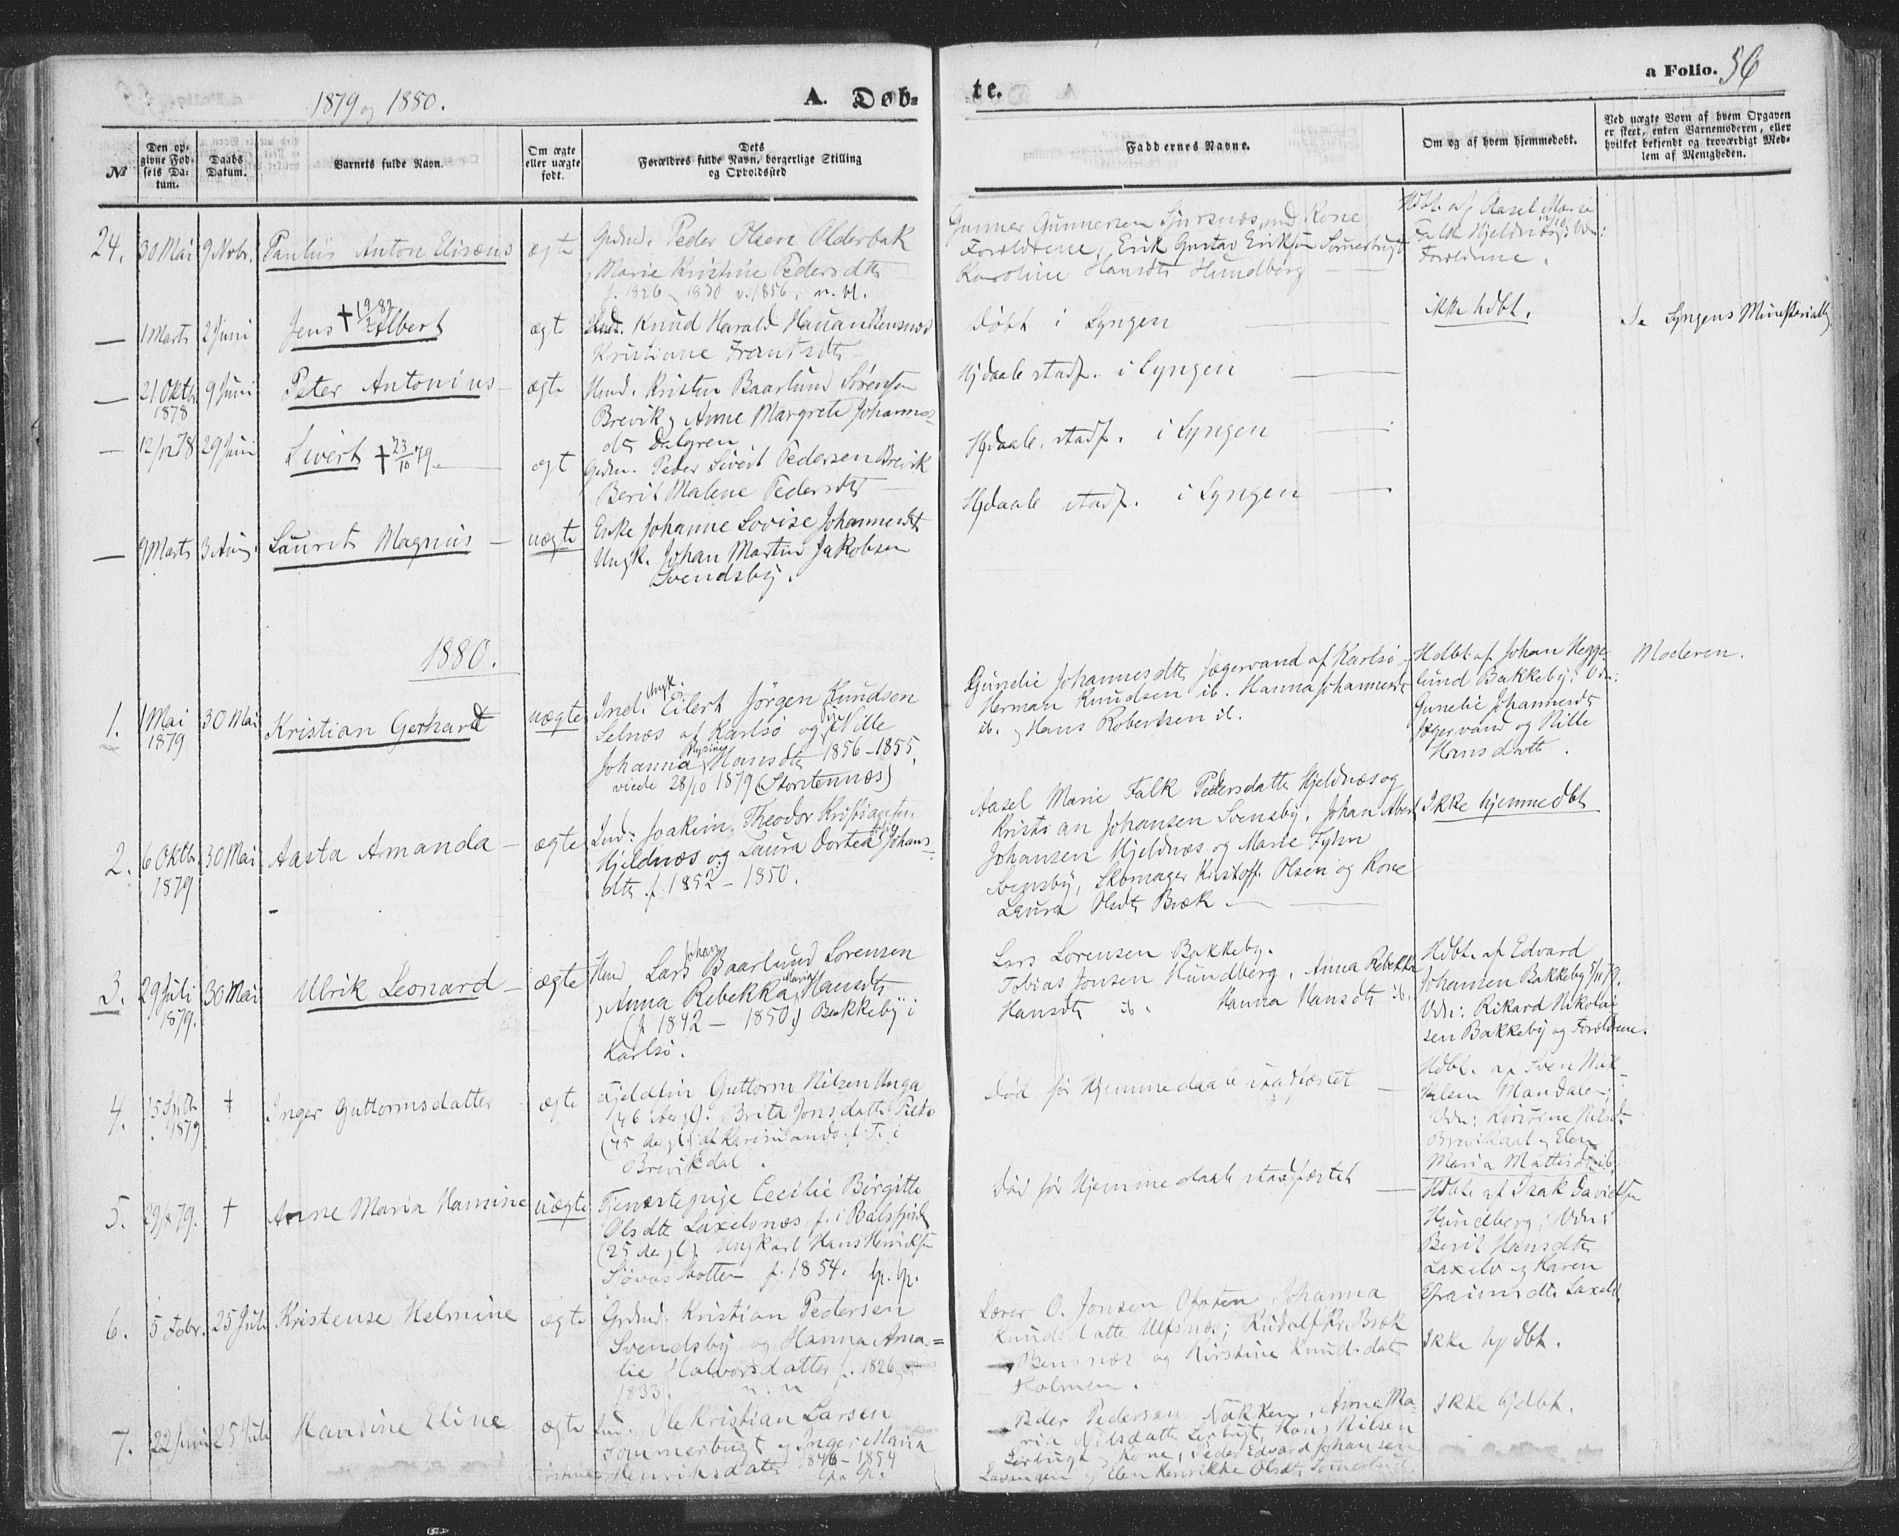 1879 og 1880.
A. Døb-
te.
a Folio. 56
№
Den op-
givne Fød-
sels Da-
tum.
Daabs
Datum.
Barnets fulde Navn.
Om ægte
eller uægte
født.
Dets
Forældres fulde Navn, borgerlige Stilling
og Opholdssted
Faddernes Navne.
Om og af hvem hjemmedøbt.
Ved uægte Børn af hvem Opgaven
er skeet, enten Barnemoderen, eller
hvilket bekjendt og troværdigt Med-
lem af Menigheden.
24. 30 Mai 9 Novbr. Paulus Anton Elisæus ægte
Peder Olsen Olderbak
Marie Kristine Pedersdtr
f. 1826 1830 v. 1856.
Gunner Gunnersen og Kone
Forældrene, Erik Gustav Eriksen
Karoline Hansdtr Hundberg
Hdbt. af Aasel Marie
Falk Hjeldnæs Vdn:
Forældrene.
— 1 Marts 2 Juni Jens Albert ægt
Knud Harald
Kristiane Frantsdtr
Døbt i Lyngen
ikke hdbt.
Se Lyngens Ministerialb.
— 21 Oktbr 1878 9 Juni Peter Antonius ægte
Kristen Baarlund Sørensen
Brevik og Anne Margrete Johannes-
dtr Dalgren
Hjdaab stadf. i Lyngen
— 12/12 78 29 Juni Sivert † 23/10 79. ægt
Peder Sivert Pedersen Brevik
Berit Malene Pedersdtr
Hjdaab. stadf. i Lyngen
— 9 Marts 3 Aug. Laurits Magnus — uægte
Enke Johanne Lovise Johannesdtr
Ungk. Johan Martin Jakobsen
Svendsby.
Hjdaab stadf. i Lyngen
1880.
1. 1 Mai 1879 30 Mai Kristian Gerhard uægte
Ungk.
Ind. Eilert Jørgen Knudsen
Selnæs af Karlsø og Pige Nille
Johanna Hansdtr 1856-1855,
viede 28/10 1879 (Stortennæs)
Gunelie Johannesdtr Jægervand af Karlsø
Herman Knudsen ib. Hanna Johannesdtr
ib. og Hans Robertsen ib.
Hdbt. af Johan Hegge-
lund Bakkeby. Vdn:
Gunelie Johannesdtr
Jægervand og Nille
Hansdatter.
Moderen.
2. 6 Oktbr. 1879 30 Mai Aasta Amanda — ægte
Ind: Joakim Theodor Kristiansen
Hjeldnæs og Laura Dortea Johans-
dtr f. 1852 - 1850.
Aasel Marie Falk Pedersdatter Hjeldnæs og
Kristian Johansen Svensby. Johan Albert
Johansen Hjeldnæs og Marie Fyhn
Svensby, Skomager Kristoff. Olsen og Kone
Laura Olsdtr Bræk
Ikke hjemmedbt
3. 29 Juli 1879. 30 Mai Ulrik Leonard — ægte
Lars Johan Baarlund Sørensen
og Anna Rebekka Maria Hansdtr
(f. 1842 — 1850) Bakkeby i
Karlsø.
Lars Sørensen Bakkeby.
Tobias Jonsen Hundberg. Anna Rebekka
Hansdtr ib. Hanna Hansdtr ib.
Hdbt. af Edvard
Johansen Bakkeby 5/11 79.
Vdn: Rikard Nikolai-
sen Bakkeby og Forældrene.
4. 15 Septbr. 1879 † Inger Guttormsdatter ægte
Fjeldfin Guttorm Nilsen Unga
(46 Aar gl). Brita Jonsdatter
(45 Aar gl) af Karesuando. f. T. i
Brevikdal.
Død før Hjemmedaab stadfæstet
Hdbt. af Sven Mik-
kelsen Mandalen;
Vdn: Kirstine Nilsd.
Brevikdal og Elen
Maria Mattisdtr ib.
5. 29/8 79. † Anne Maria Hamine uægte
Tjenestepige Cecilie Birgitte
Olsdtr Laxelvnæs, f. i Balsfjord
(25 Aar gl). Ungkarl Hans Henriksen
f. 1854.
Død før Hjemmedaab stadfæstet
Hdbt. af Isak Davidsen
Hundberg; Vdn:
Berit Hansdtr
Laxelv og Karen
Efraimsdtr Laxelv.
6. 5 Febr. 25 Juli Kristense Helmine ægte
Kristian Pedersen
Svendsby og Hanna Ama-
lie Halvorsdatter f. 1826
1833.
Lærer O. Jonsen Johanna
Knudsdatter Ulfsnæs; Rudolf Kr. Bræk
Bensnæs og Kirstine Knudsdatr
Holmen.
Ikke hjdbt.
7. 22 Juni 25 Juli Hansine Eline ægte
Ind. Ole Kristian Larsen
Sommerbugt og Inger Maria
Henriksdatter 1846 - 1854
Peder Pedersen Nakken, Anne Ma-
ria Nilsdatter Lerbugt, Hans Nilsen
Lerbugt og Kone, Peder Edvard Johansen
og Elen Henrikke Olsdtr
Ikke hjdbt.